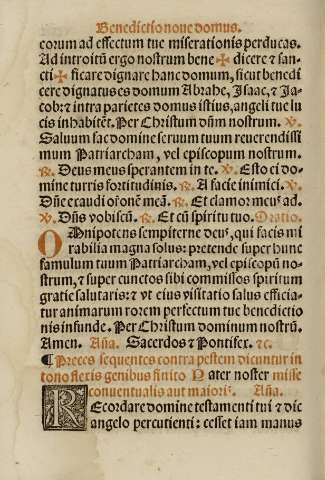 Benedictio noue domus.
eorum ad effectum tue miserationis perducas.
Ad introitū ergo nostrum bene ✠ dicere ⁊ san-
cti ✠ ficare dignare hanc domum, sicut benedi
cere dignatus es domum Abrahe, Isaac, ⁊ Ja-
cob: ⁊ intra parietes domus istius, angeli tue lu
cis inhabitēt. Per Christum dn̄m nostrum. ℣.
Saluum fac domine seruum tuum reuerendissi
mum Patriarcham, vel episcopum nostrum.
℟. Deus meus sperantem in te. ℣. Esto ei do-
mine turris fortitudinis. ℟. A facie inimici. ℣.
Dn̄e exaudi or̄onē meā. ℟. Et clamor meus ad.
℣. Dn̄s vobiscū. ℟. Et cū spiritu tuo. Oratio.
OMnipotens sempiterne deus, qui facis mi
rabilia magna solus: pretende super hunc
famulum tuum Patriarcham, vel episcopū no-
strum, ⁊ super cunctos sibi commissos spiritum
gratie salutaris: ⁊ vt eius visitatio salus efficia-
tur animarum rorem perfectum tue benedictio
nis infunde. Per Christum dominum nostrū.
Amen. Añа. Sacerdos ⁊ Pontifex. ⁊c.
¶ Preces sequentes contra pestem dicuntur in
tono flexis genibus finito Pater noster misse
conuentualis aut maioris. Aña.
REcordare domine testamenti tui ⁊ dic
angelo percutienti: cesset iam manus